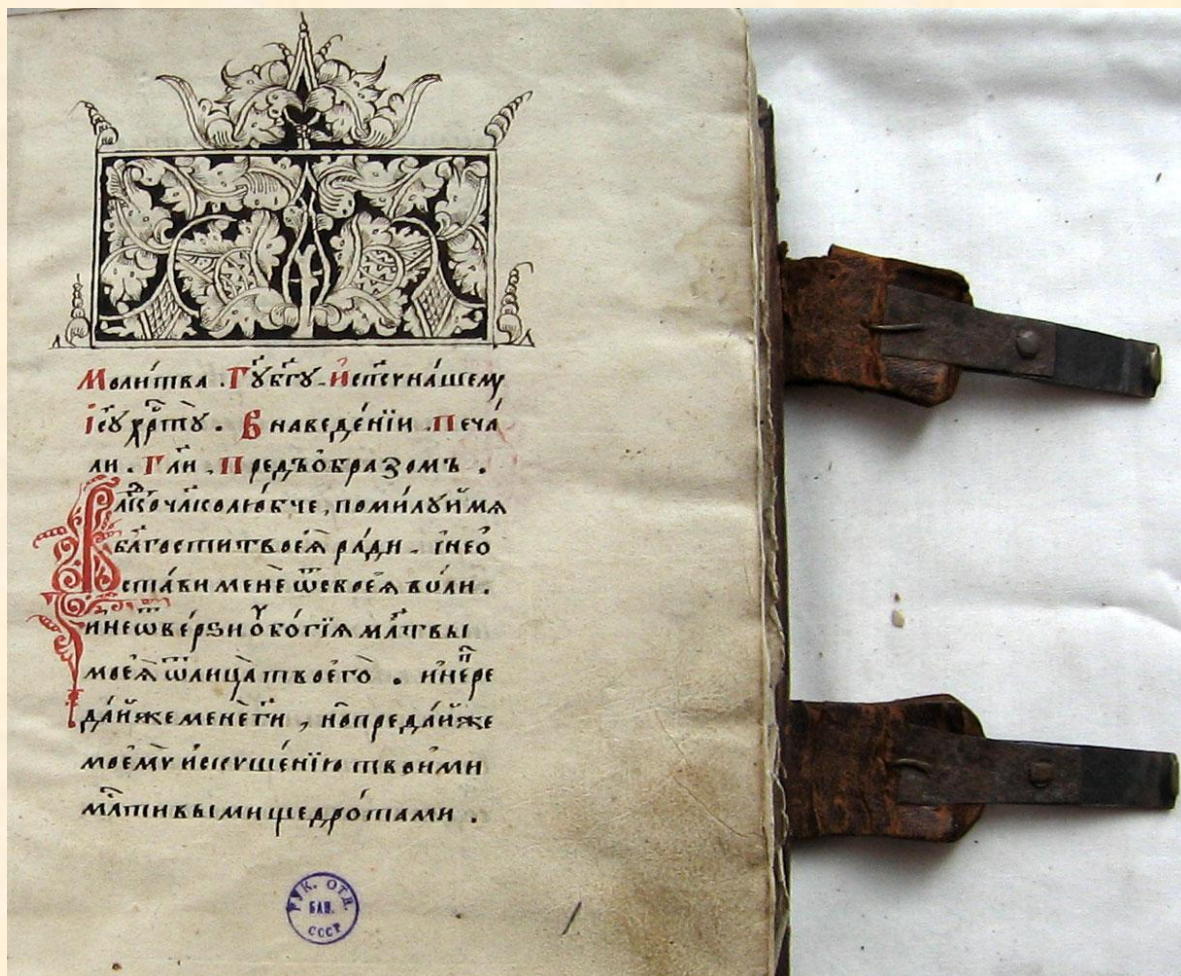 Моли́тва . Гу҃ бг҃у . И сп҃су на́шему
І҆су хрⷭ҇ту̀ . В наведе́нїи . Печа́
ли . Гл҃и . Предъ о́бразомъ .
Влⷣко чл҃колю́бче , поми́луй мѧ
бл҃гости твоеѧ̀ ра́ди . і҆ не ѡ
ста́ви менѐ ѿ своеѧ̀ во́ли .
и҆ не ѿве́рѕи ᲂу҆бо́гїѧ мл҃твы
моеѧ̀ ѿ лица̀ твоего̀ . и҆ не пре
да́й же менѐ гн҃и , но̀ преда́й же
моемꙋ̀ и҆скуше́нїю твои́ми
млⷭ҇тивыми щедро́тами .
РУК. ОТД.
БАН.
СССР